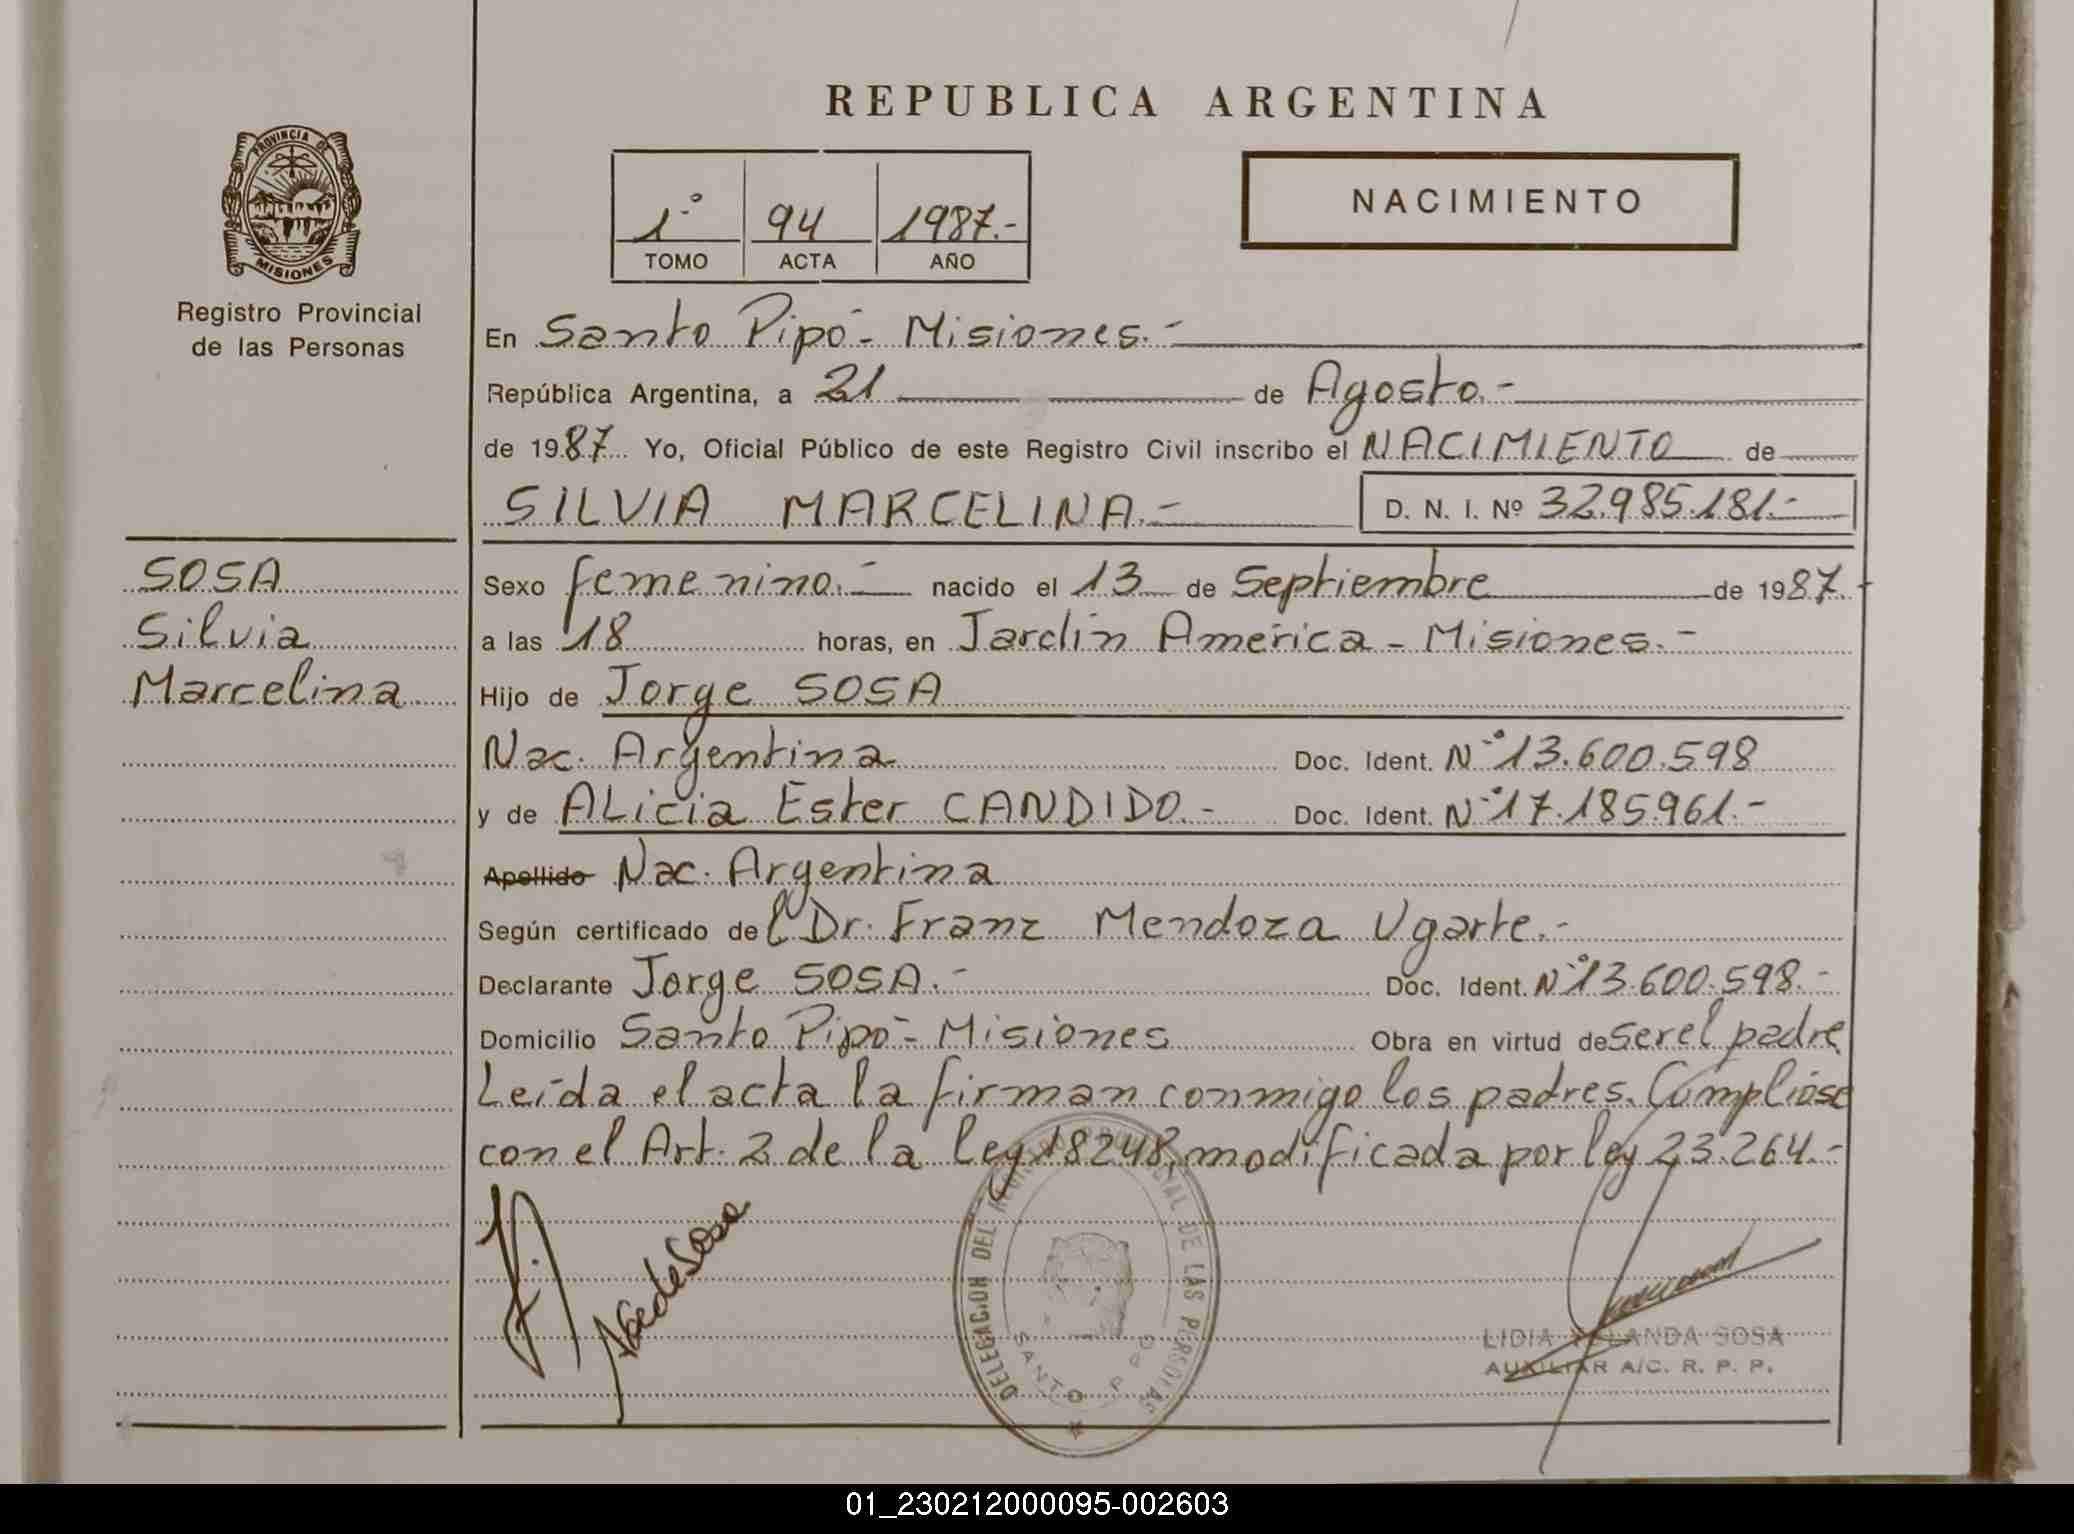 REPUBLICA ARGENTINA
PROVINCIA DE
MISIONES
Registro Provincial
de las Personas
1º 94 1987.-
TOMO ACTA AÑO
NACIMIENTO
En Santo Pipó - Misiones.-
República Argentina, a 21 de Agosto.-
de 1987 Yo, Oficial Público de este Registro Civil inscribo el NACIMIENTO de
SILVIA MARCELINA.- D. N. I. Nº 32.985.181.-
SOSA
Silvia
Marcelina
Sexo femenino.- nacido el 13 de Septiembre de 1987.-
a las 18 horas, en Jardín América - Misiones.-
Hijo de Jorge SOSA
Nac. Argentina Doc. Ident. Nº 13.600.598
y de ALicia Ester CANDIDO.- Doc. Ident. Nº 17.185.961.-
Apellido Nac. Argentina
Según certificado del Dr. Franz Mendoza Ugarte.-
Declarante Jorge SOSA.- Doc. Ident. Nº 13.600.598.-
Domicilio Santo Pipó - Misiones Obra en virtud de ser el padre
Leída el acta la firman conmigo los padres. Cumplióse
con el Art. 2 de la ley 18248, modificada por ley 23.264.-
de Sosa
DELEGACION DEL REGISTRO PROVINCIAL DE LAS PERSONAS
SANTO PIPO
LIDIA YOLANDA SOSA
AUXILIAR A/C. R. P. P.
01_230212000095-002603